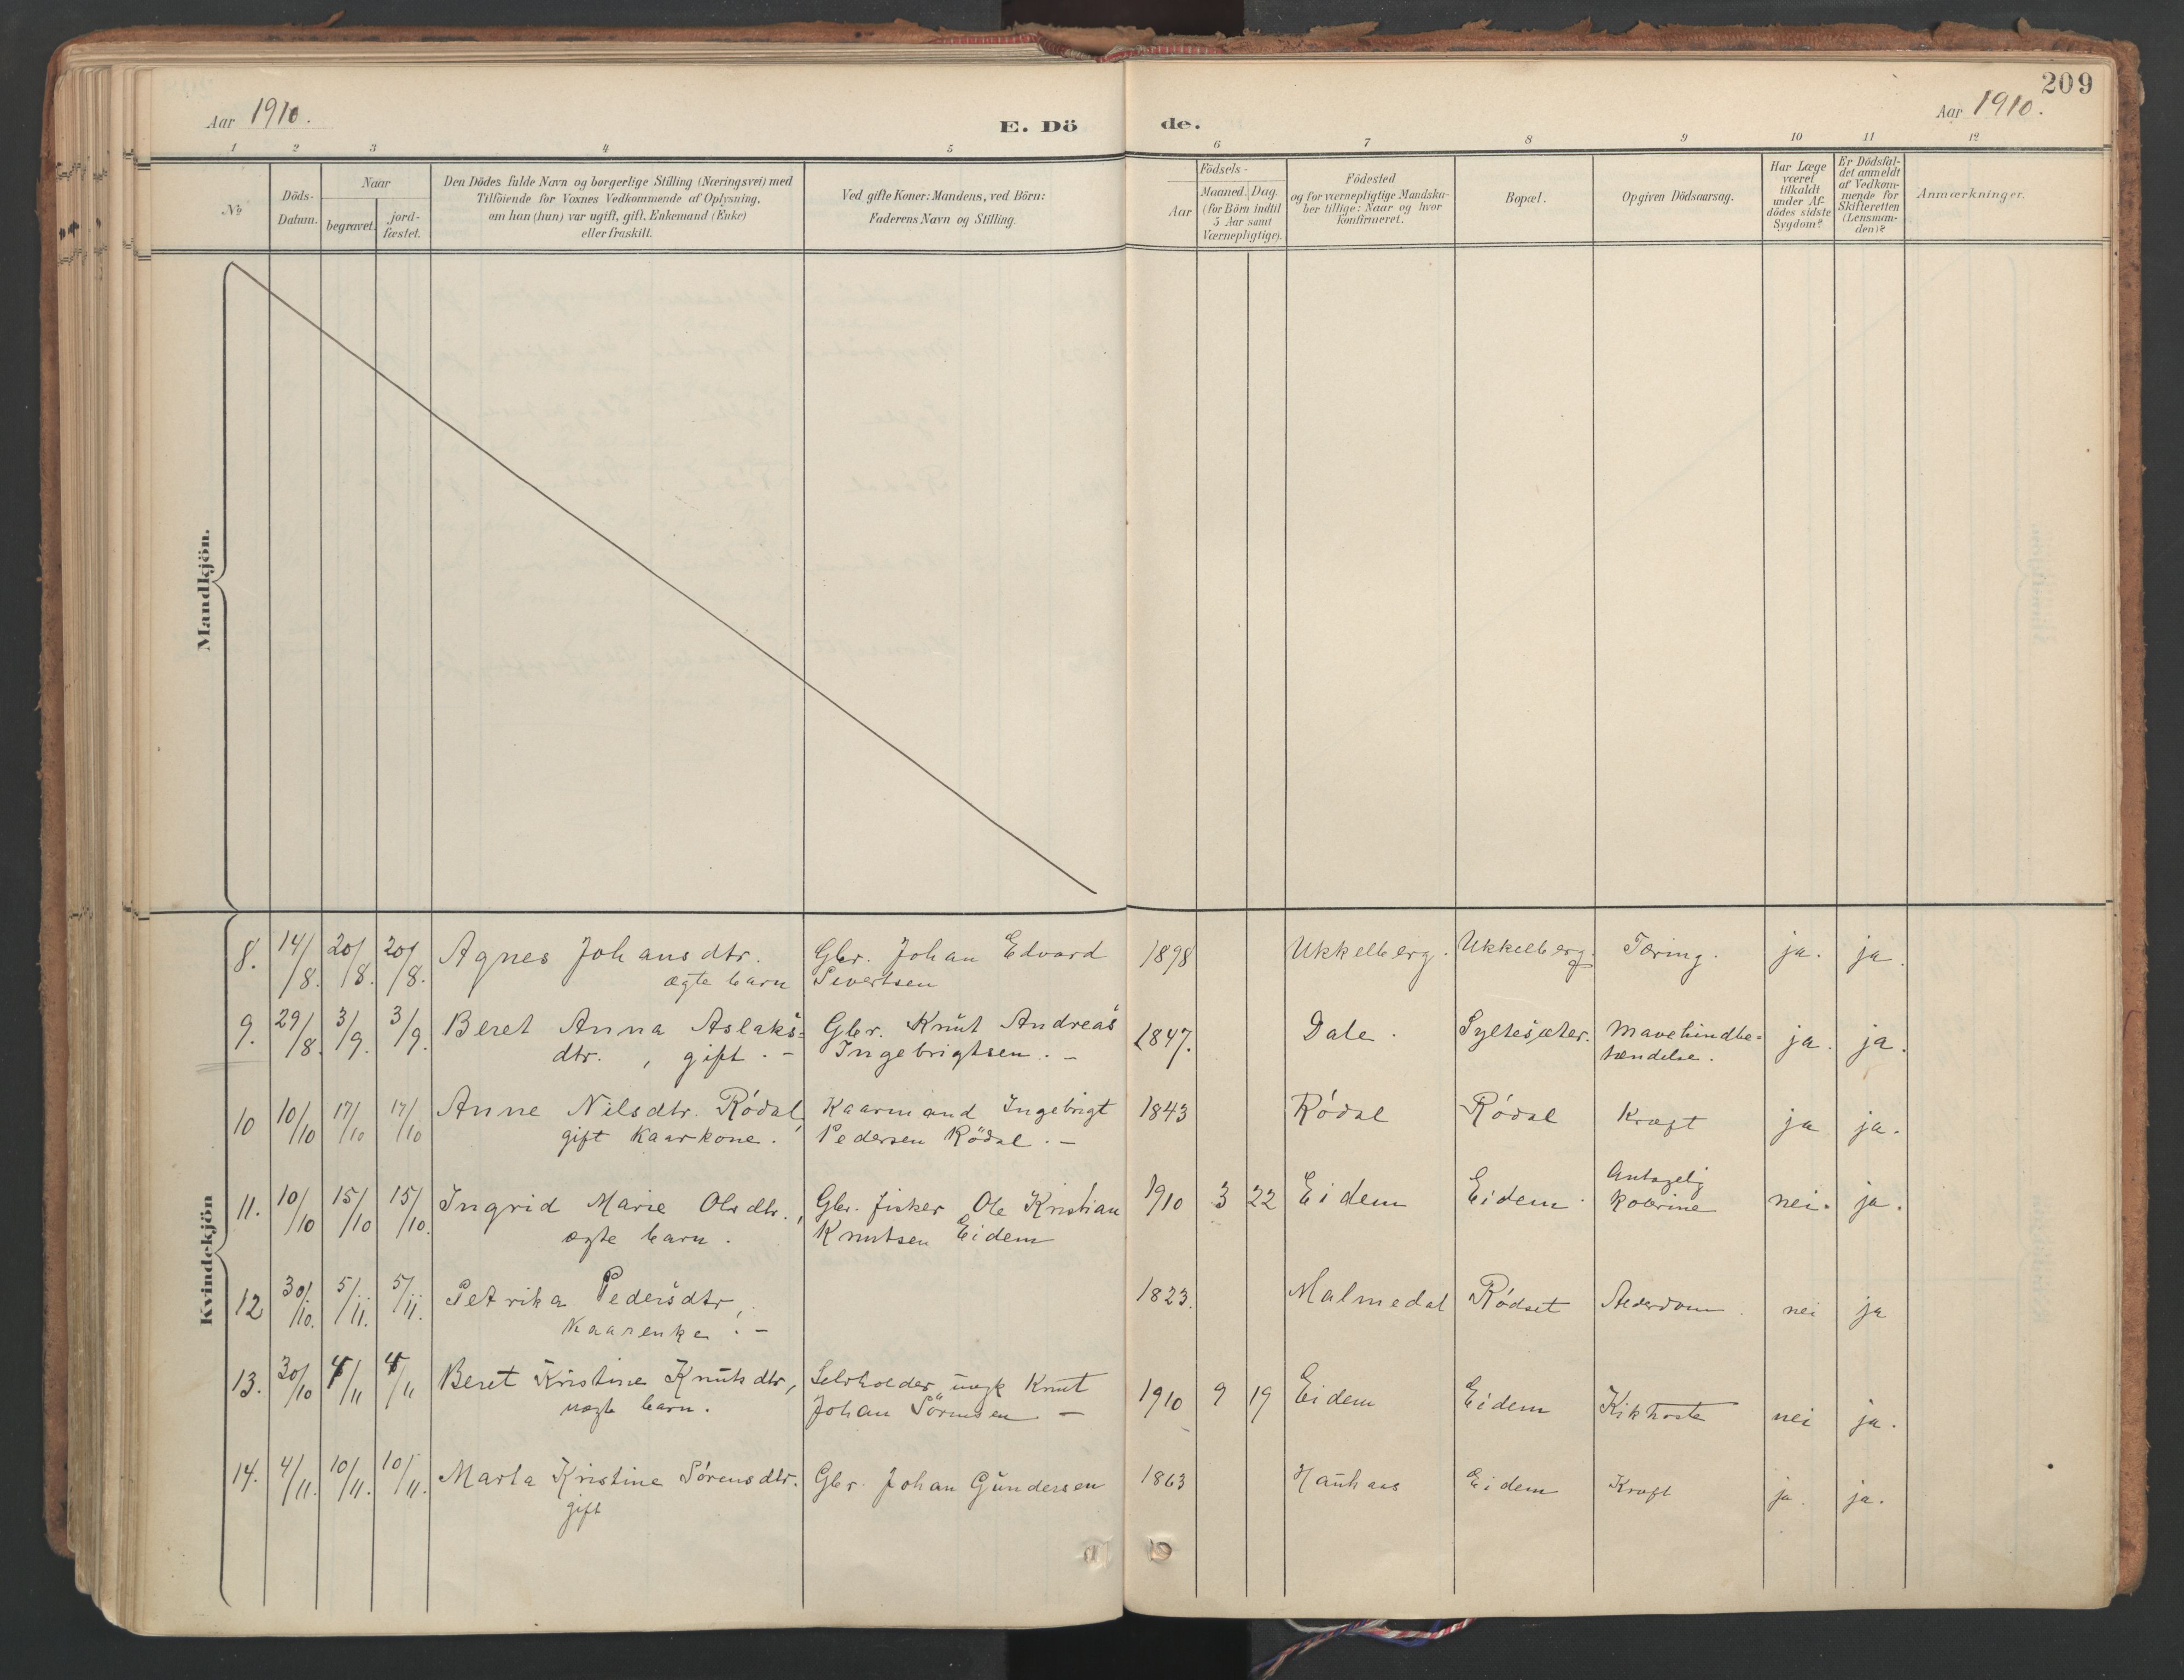 209
Aar 1910.
E. Dö
de.
Aar 1910.
1 2 3 4 5 6 7 8 9 10 11 12
No
Döds-
Datum.
Naar
begravet.
jord-
fæstet.
Den Dödes fulde Navn og borgerlige Stilling (Næringsvei) med
Tilföiende for Voxnes Vedkommende af Oplysning,
om han (hun) var ugift, gift, Enkemand (Enke)
eller fraskilt.
Ved gifte Koner: Mandens, ved Börn:
Faderens Navn og Stilling.
Födsels-
Aar
Maaned. Dag.
(for Börn indtil
5 Aar samt
Værnepligtige).
Födested
og for værnepligtige Mandska-
ber tillige: Naar og hvor
konfirmeret.
Bopæl.
Opgiven Dödsaarsag.
Har Læge
været
tilkaldt
under Af-
dödes sidste
Sygdom?
Er Dödsfal-
det anmeldt
af Vedkom-
mende for
Skifteretten
(Lensman-
den)?
Anmærkninger.
Mandkjön.
Kvindekjön
8. 14/8. 20/8. 20/8. Agnes Johansdtr. Gbr. Johan Edvard 1898 Ukkelberg. Ukkelberg. Tæring. ja. ja.
ægte barn Sivertsen
9. 29/8. 3/9. 3/9. Beret Anna Aslaks= Gbr. Knut Andreas 1847. Dale. Syltesæter. Mavehindbe= ja. ja.
dtr., gift. - Ingebrigtsen. - tændelse.
10 10/10 17/10 17/10 Anne Nilsdtr. Rödal, Kaarmand Ingebrigt 1843 Rödal Rödal Kræft ja ja.
gift Kaarkone. Pedersen Rödal. -
Antagelig
11. 10/10 15/10 15/10. Ingrid Marie Olsdtr., Gbr. fisker Ole Kristian 1910 3 22 Eidem Eidem. Kolerine nei. ja.
ægte barn. Knutsen Eidem
12 30/10. 5/11. 5/11. Petrika Pedersdtr, 1823. Malmedal Rödset Alderdom. nei ja
Kaarenke. -
13. 30/10 4/11 4/11 Beret Kristine Knutsdtr, Selvholder ungk Knut 1910 9 19 Eidem Eidem Kikhoste nei ja.
uægte barn. Johan Sörensen -
14. 4/11. 10/11. 10/11. Marta Kristine Sörensdtr. Gbr. Johan Gundersen 1863 Hauhaas Eidem Kræft ja. ja.
gift